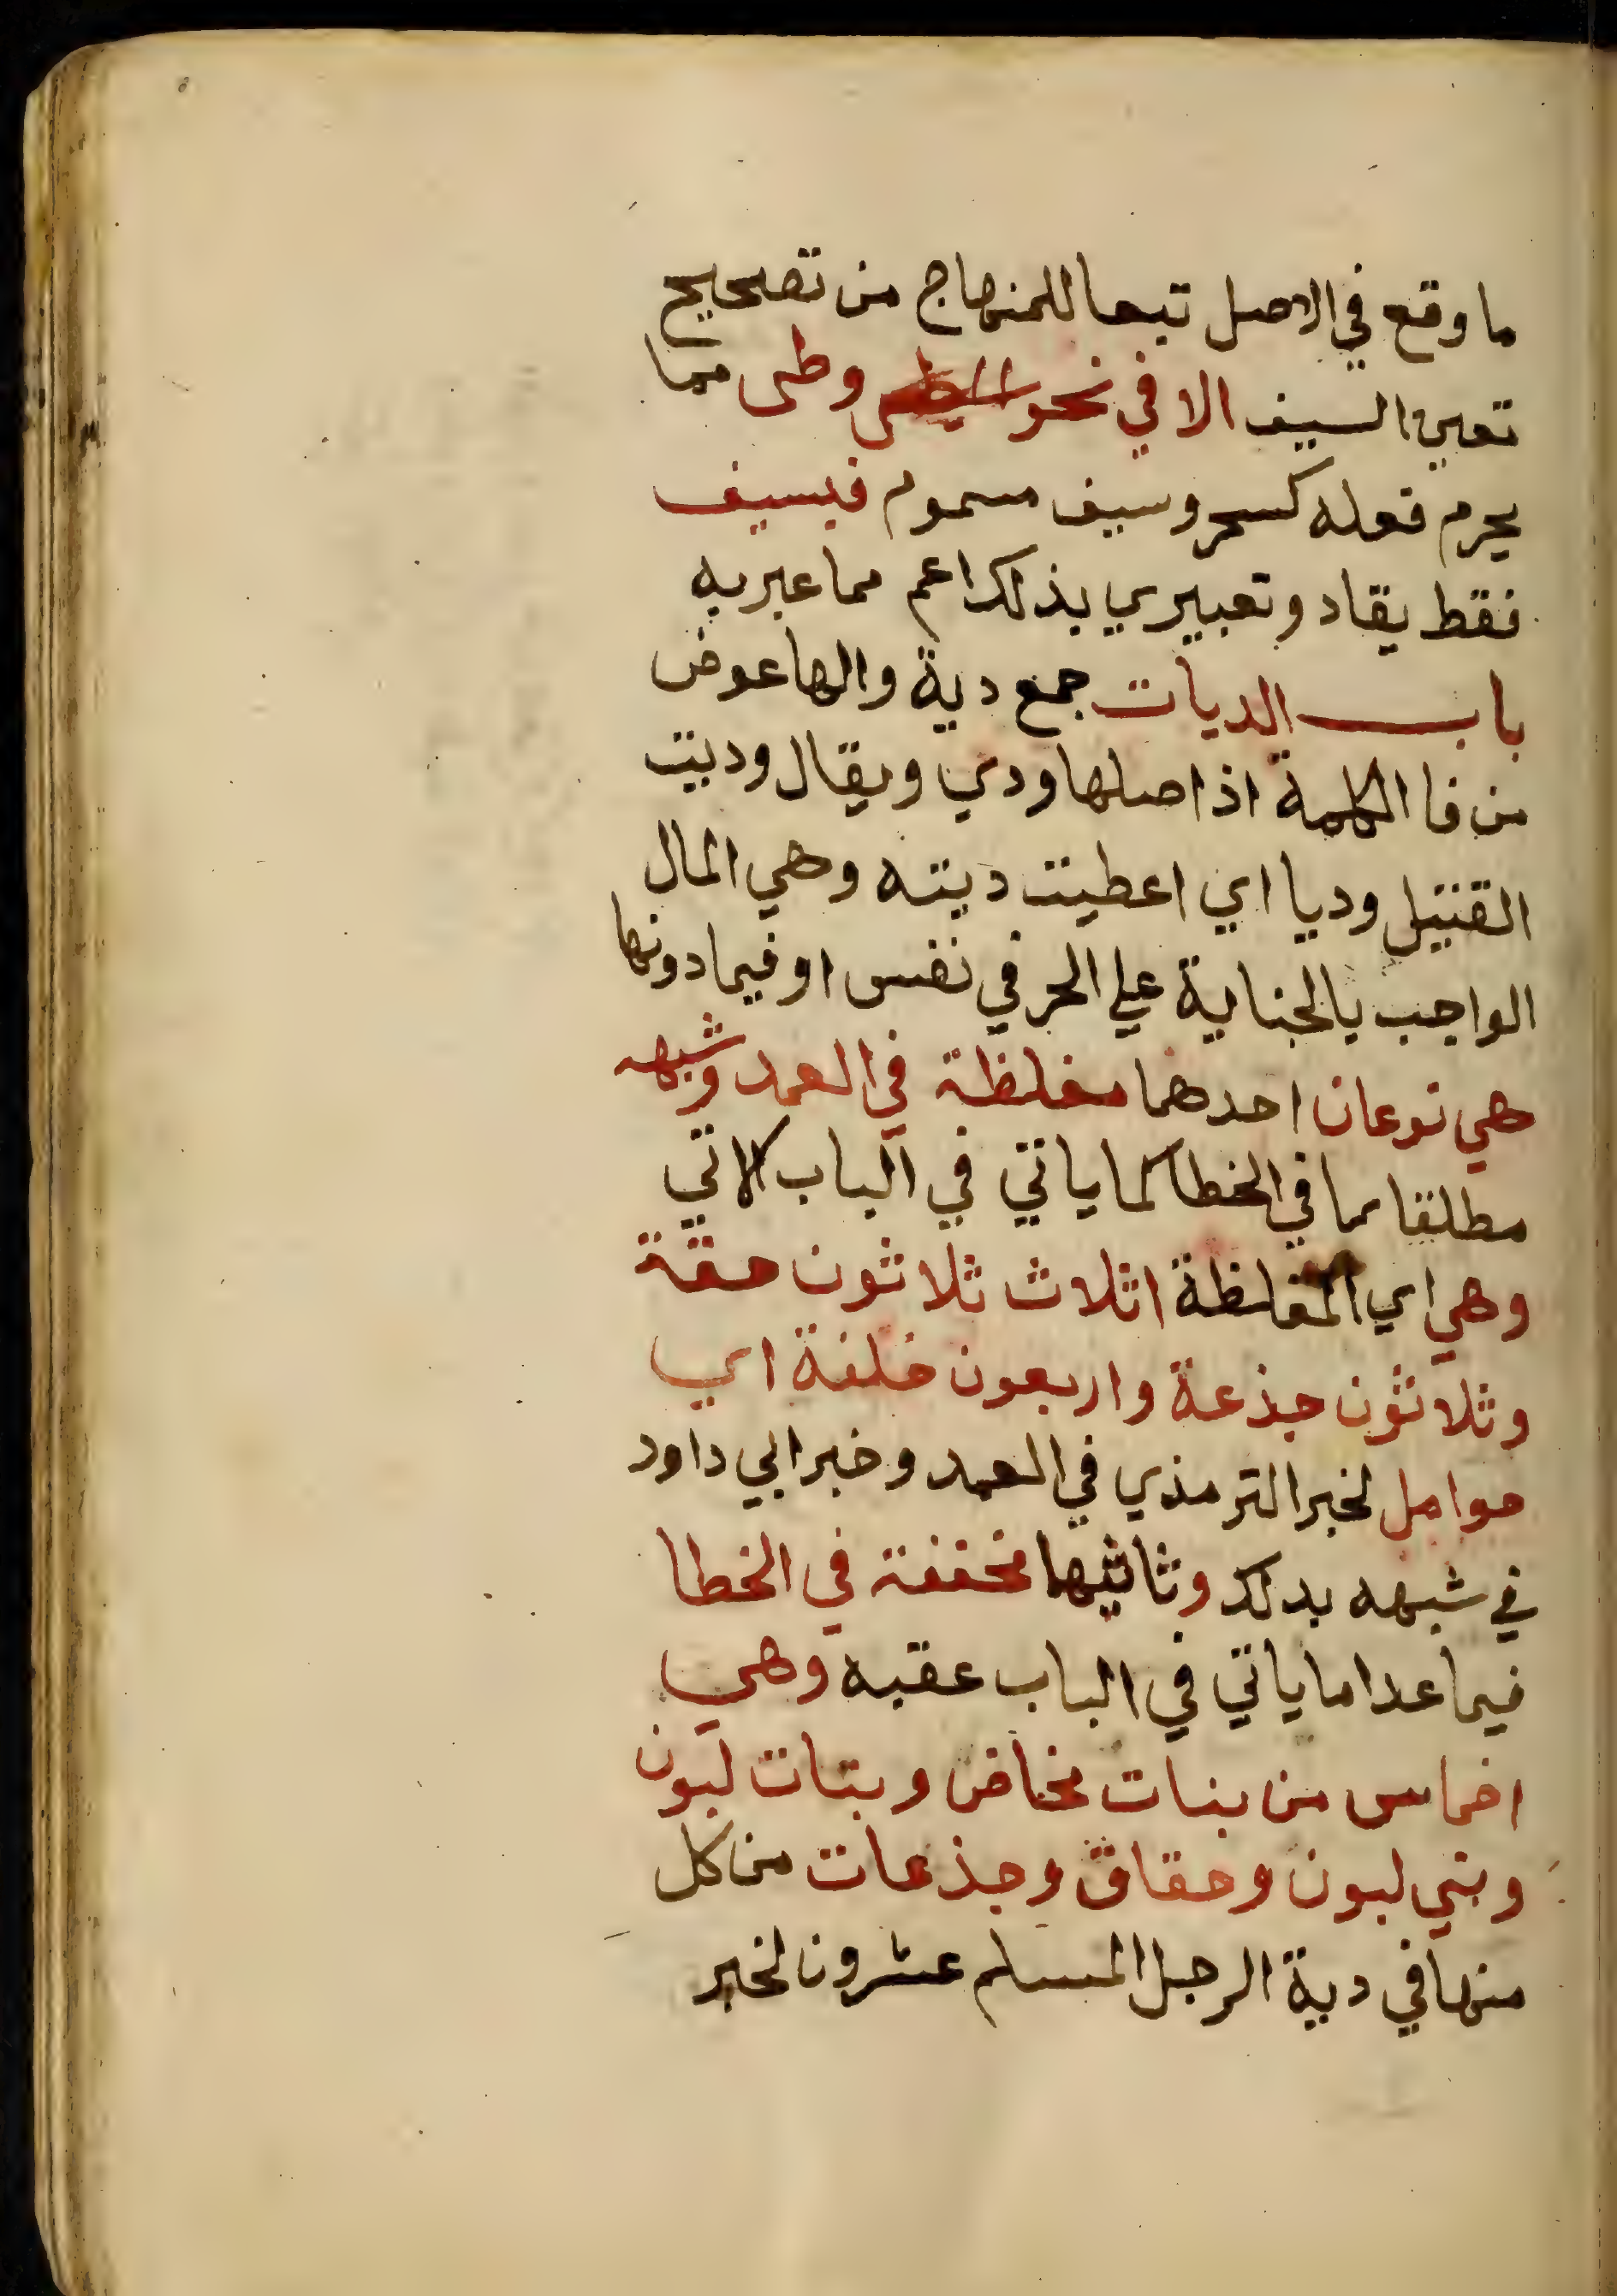 ما وقع في الاصل تبعا للمنهاج من تصحيح
تعين السيف الا في نحو وطى مما
يحرم فعله كسحر وسيف مسموم فبسيف
فقط يقاد وتعبيري بذلك اعم مما عبر به
باب الديات جمع دية والها عوض
من فا الكلمة اذ اصلها ودي ويقال وديت
القتيل وديا اي اعطيت ديته وهي المال
الواجب بالجناية علي الحر في نفس او فيما دونها
هي نوعان احدهما مغلظة في العمد وشبهه
مطلقا مما في الخطا كما ياتي في الباب الاتي
وهي اي المغلظة اثلاث ثلاثون حقة
وثلاثون جذعة واربعون خلفة اي
حوامل لخبر الترمذي في العمد وخبر ابي داود
في شبهه بذلك وثانيهما مخففة في الخطا
فيما عدا ما ياتي في الباب عقبه وهي
اخماس من بنات مخاض وبنات لبون
وبني لبون وحقاق وجذعات من كل
منها في دية الرجل المسلم عشرون لخبر